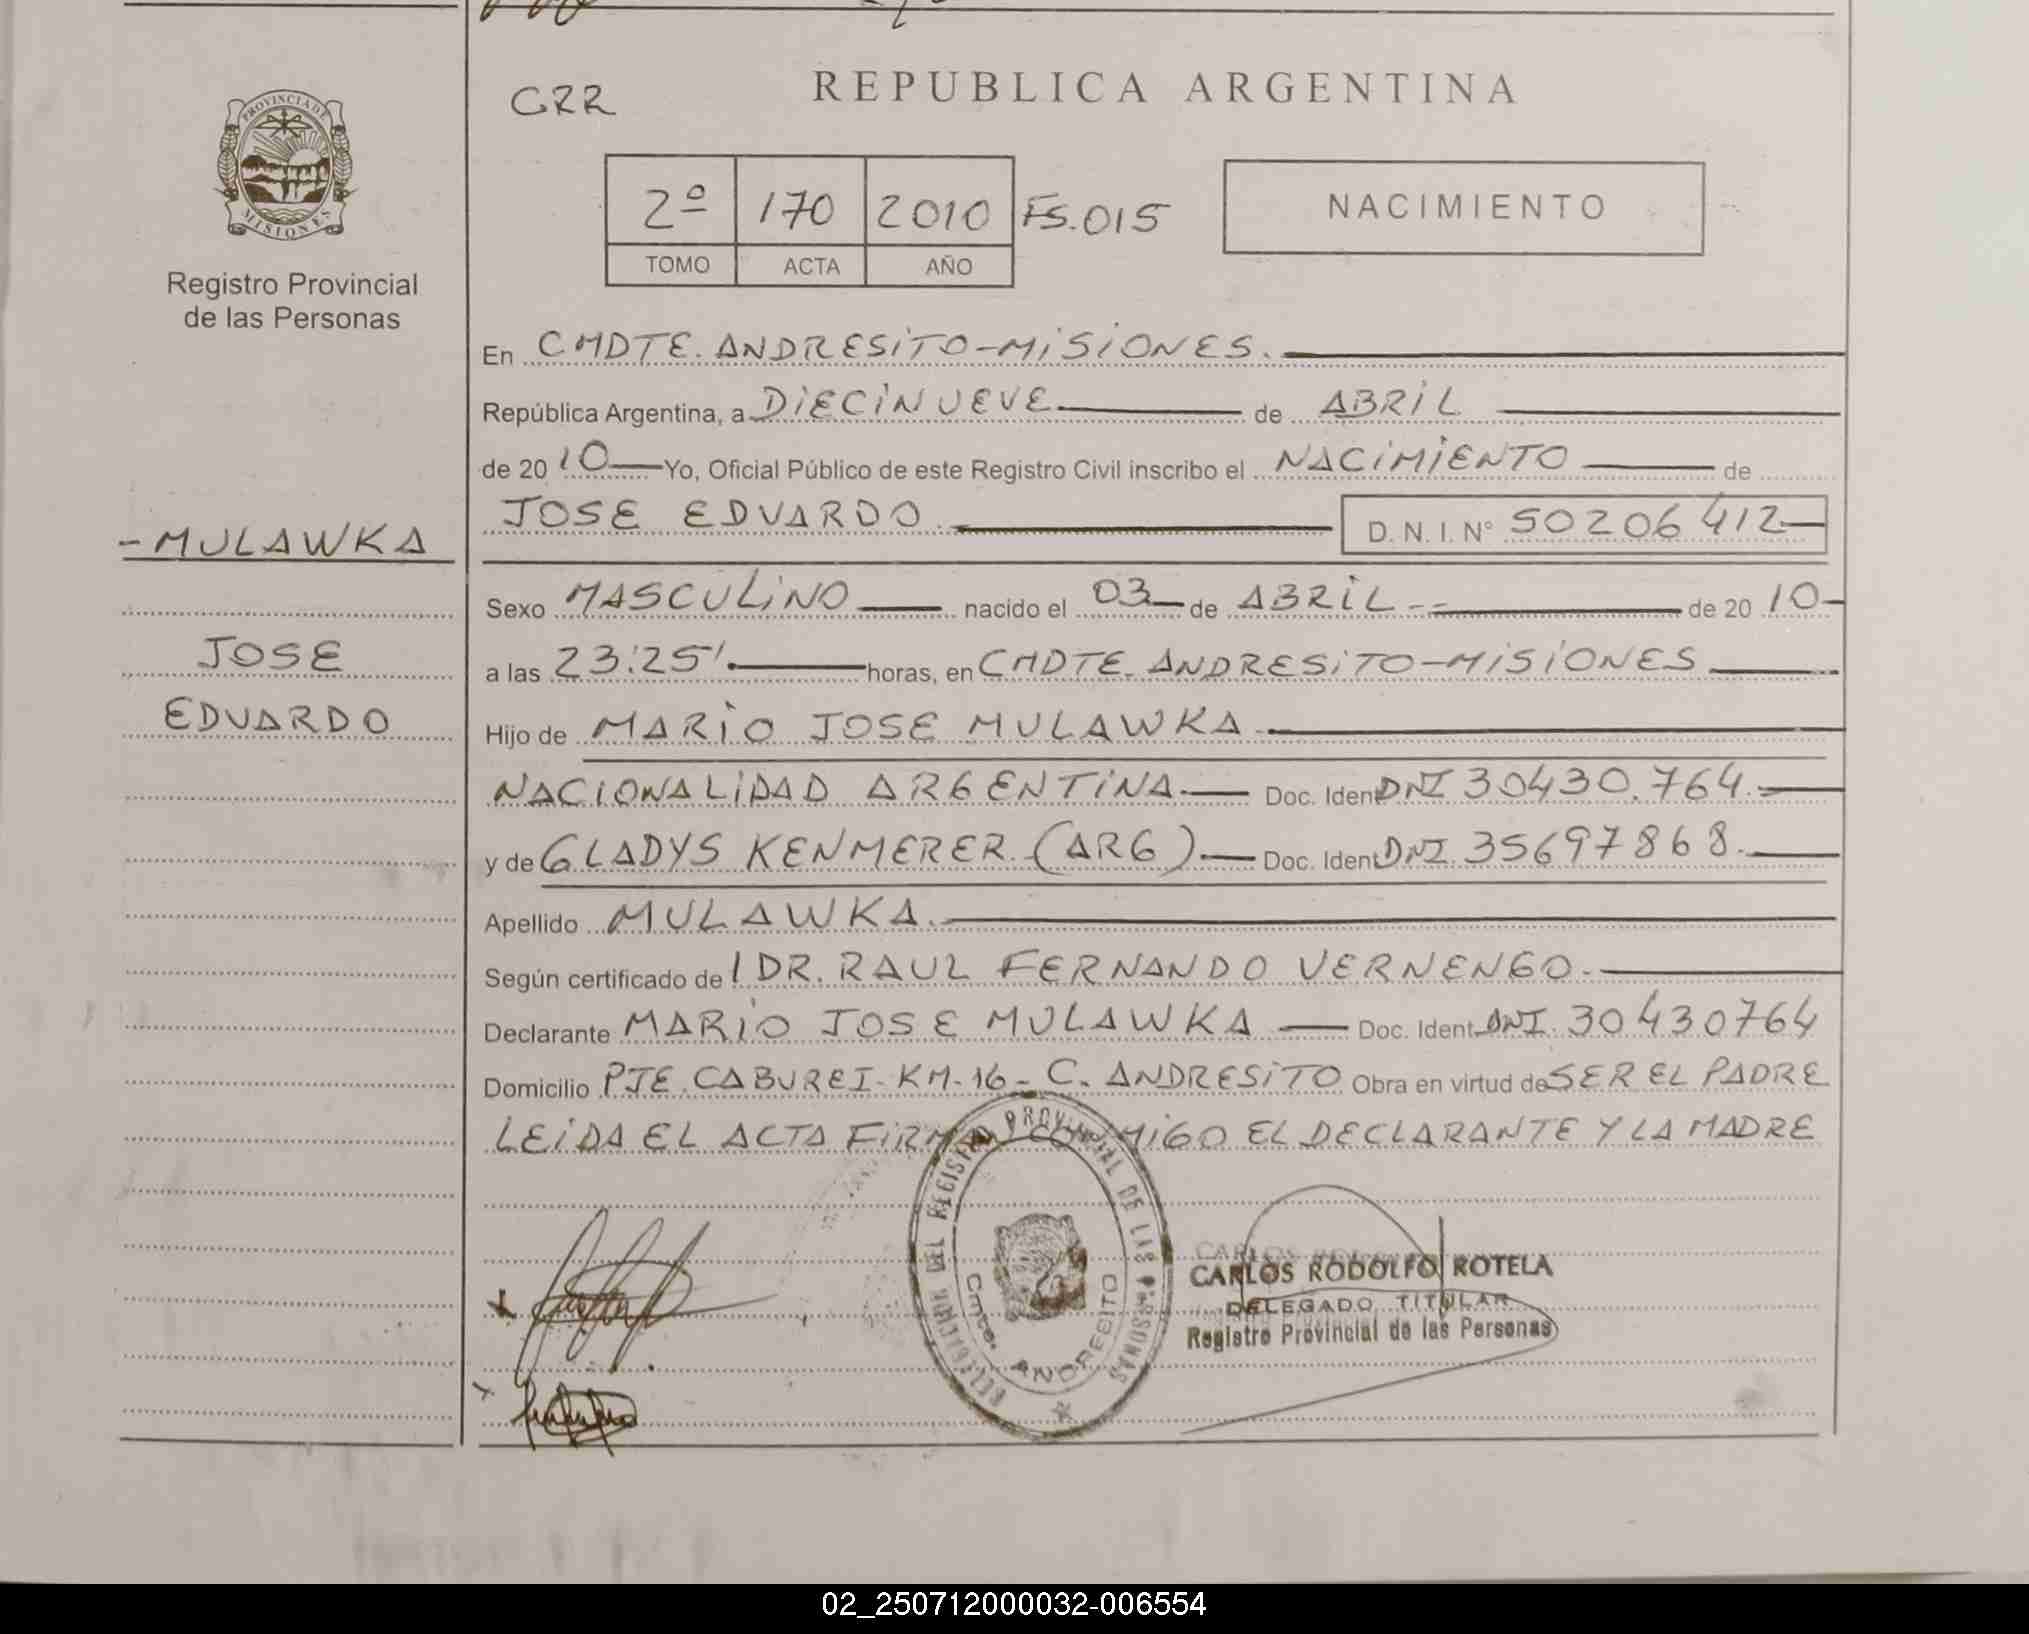 PROVINCIA DE
MISIONES
Registro Provincial
de las Personas
- MULAWKA
JOSE
EDUARDO
CRR
REPUBLICA ARGENTINA
2º 170 2010 FS.015
TOMO ACTA AÑO
NACIMIENTO
En CMDTE. ANDRESITO-MISIONES.
República Argentina, a DIECINUEVE de ABRIL
de 2010 Yo, Oficial Público de este Registro Civil inscribo el NACIMIENTO de
JOSE EDUARDO. D. N. I. Nº 50206412
Sexo MASCULINO nacido el 03 de ABRIL de 2010
a las 23:25'. horas, en CMDTE. ANDRESITO-MISIONES
Hijo de MARIO JOSE MULAWKA
NACIONALIDAD ARGENTINA. Doc. Ident DNI 30430.764.
y de GLADYS KENMERER. (ARG). Doc. Ident DNI. 35697868.
Apellido MULAWKA.
Según certificado de 1 DR. RAUL FERNANDO VERNENGO.
Declarante MARIO JOSE MULAWKA Doc. Ident. DNI. 30430764
Domicilio PJE. CABUREI-KM-16- C. ANDRESITO Obra en virtud de SER EL PADRE
LEIDA EL ACTA FIRMAN CONMIGO EL DECLARANTE Y LA MADRE
DELEGACION DEL REGISTRO PROVINCIAL DE LAS PERSONAS
Cmte. ANDRECITO
CARLOS RODOLFO ROTELA
DELEGADO TITULAR
Registro Provincial de las Personas
02_250712000032-006554